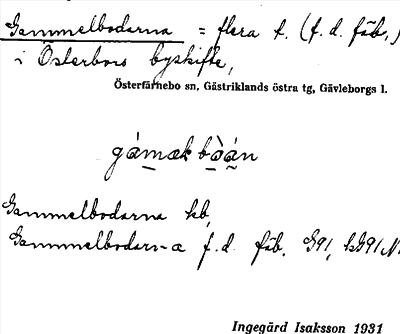 Gammelbodarna = flera t. (f. d. fäb.)
i Österbors byskifte,
Österfärnebo sn, Gästriklands östra tg, Gävleborgs l.
gámæk bòán
Gammelbodarna kb,
Gammelbodarna f. d. fäb. G91, kG91 N.
Ingegärd Isaksson 1931